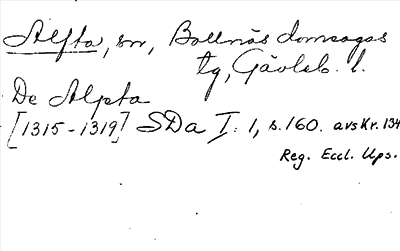 Alfta, sn, Bollnäs domsagas
tg, Gävleb. l.
De Alpta
[1315-1319] SDa I: 1, s. 160. avskr. 134
Reg. Eccl. Ups.